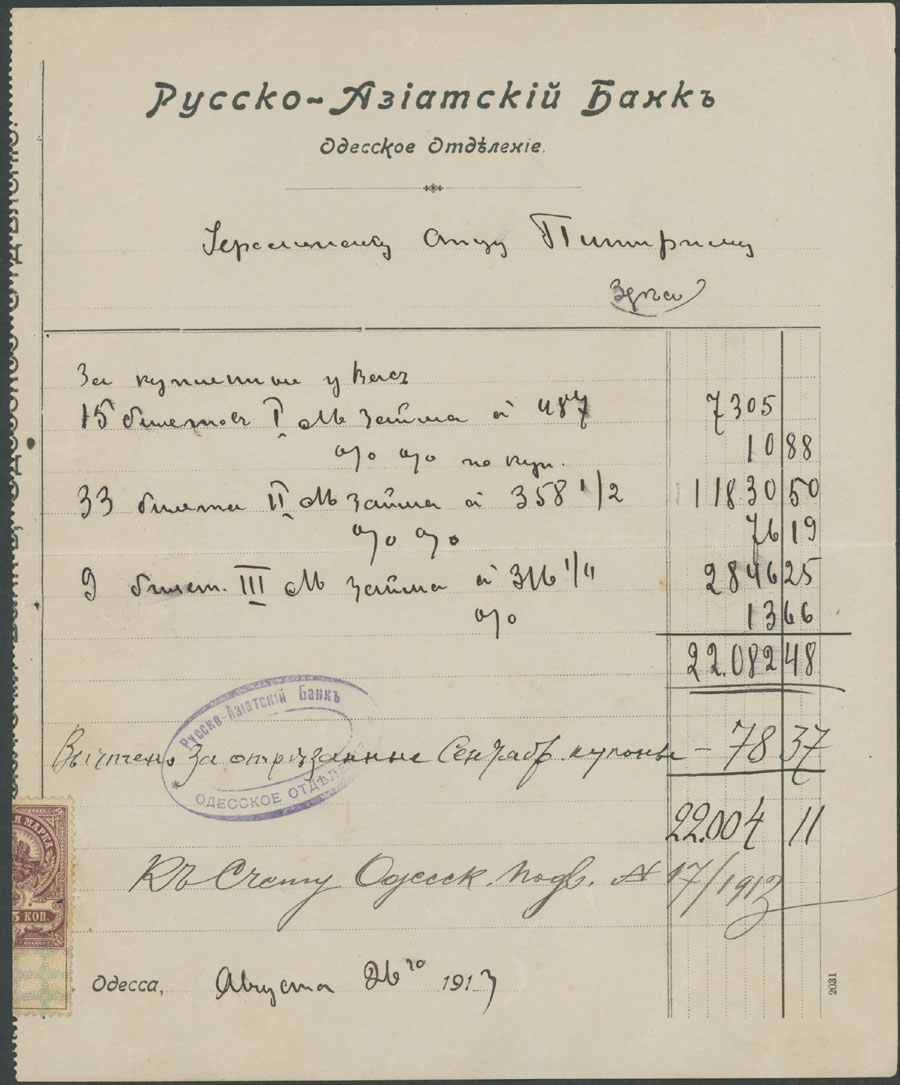 Русско-Азіатскій Банкъ
Одесское Отдѣленіе.
Іеромонаху Отцу Питириму
Здѣсь
За купленные у Васъ
15 билетовъ I М займа à 487 7305
% % по куп. 10 88
33 билета II М займа à 358 1/2 11830 50
% % 76 19
9 билет. III М займа à 316 1/4 2846 25
% 13 66
22.082 48
Русско-Азіатскій Банкъ
Вычтено за отрѣзанные Сентябр. купоны – 78 37
ОДЕССКОЕ ОТДѢЛ
22.004 11
Къ Счету Одесск. подв. № 17/1913
Я МАРКА
5 КОП.
Одесса, Августа 26го 1913
2031